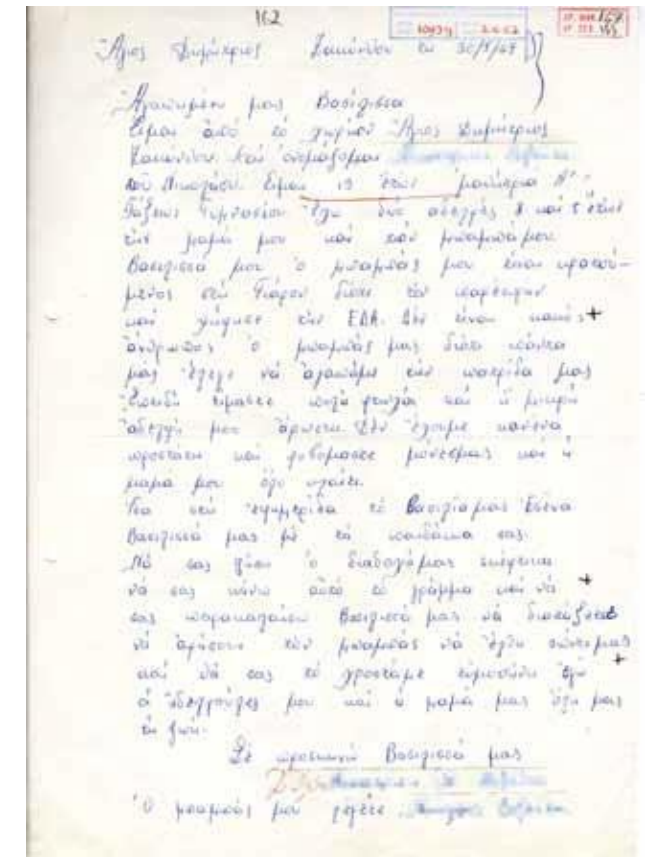 162
10934 2652
Άγιος Δημήτριος Ζακύνθου τη 30/5/67
Ἀγαπημένη μας Βασίλισσα
Εἶμαι ἀπό το χωριόν Ἅγιος Δημήτριος
Ζακύνθου και ὀνομάζομαι
τοῦ Νικολάου. Εἶμαι 13 ἐτῶν μαθήτρια Α'
Τάξεως Γυμνασίου Ἔχω δυό αδελφές 8 και 5 ἐτῶν
την μαμά μου και τον μπαμπά μου.
Βασίλισσά μου ὁ μπαμπάς μου εἶναι κρατού-
μενος στη Γιάρον διότι τον
και ψήφισε την ΕΔΑ. Δέν εἶναι κακός
ἄνθρωπος ὁ μπαμπάς μας διότι πάντα
μᾶς ἔλεγε νά ἀγαπᾶμε την πατρίδα μας
Ἐπειδή εἴμαστε πολύ φτωχοί και ἡ μικρή
ἀδελφή μου ἄρρωστη. Δέν ἔχουμε κανένα
προστάτη και φοβόμαστε μόνες μας και ἡ
μαμά μου ὅλο κλαίει.
στη ἐφημερίδα το Βασιλιά μας Ἐσένα
Βασίλισσά μας με τα παιδάκια σας.
Νά σας ζήσει ὁ διάδοχός μας σκέφτηκα
νά σας κάνω αὐτό το γράμμα και νά
σας παρακαλέσω Βασίλισσά μας νά διατάξετε
νά ἀφήσουν τον μπαμπάς νά ἔλθη σπίτι μας
και θά σας το χρωστᾶμε εὐγνωμοσύνη ἐγώ
οἱ ἀδελφοῦλες μου και ἡ μαμά μας ὅλη μας
τη ζωή.
Σέ προσκυνῶ Βασίλισσά μας
Ὁ μπαμπάς μου λέγεται